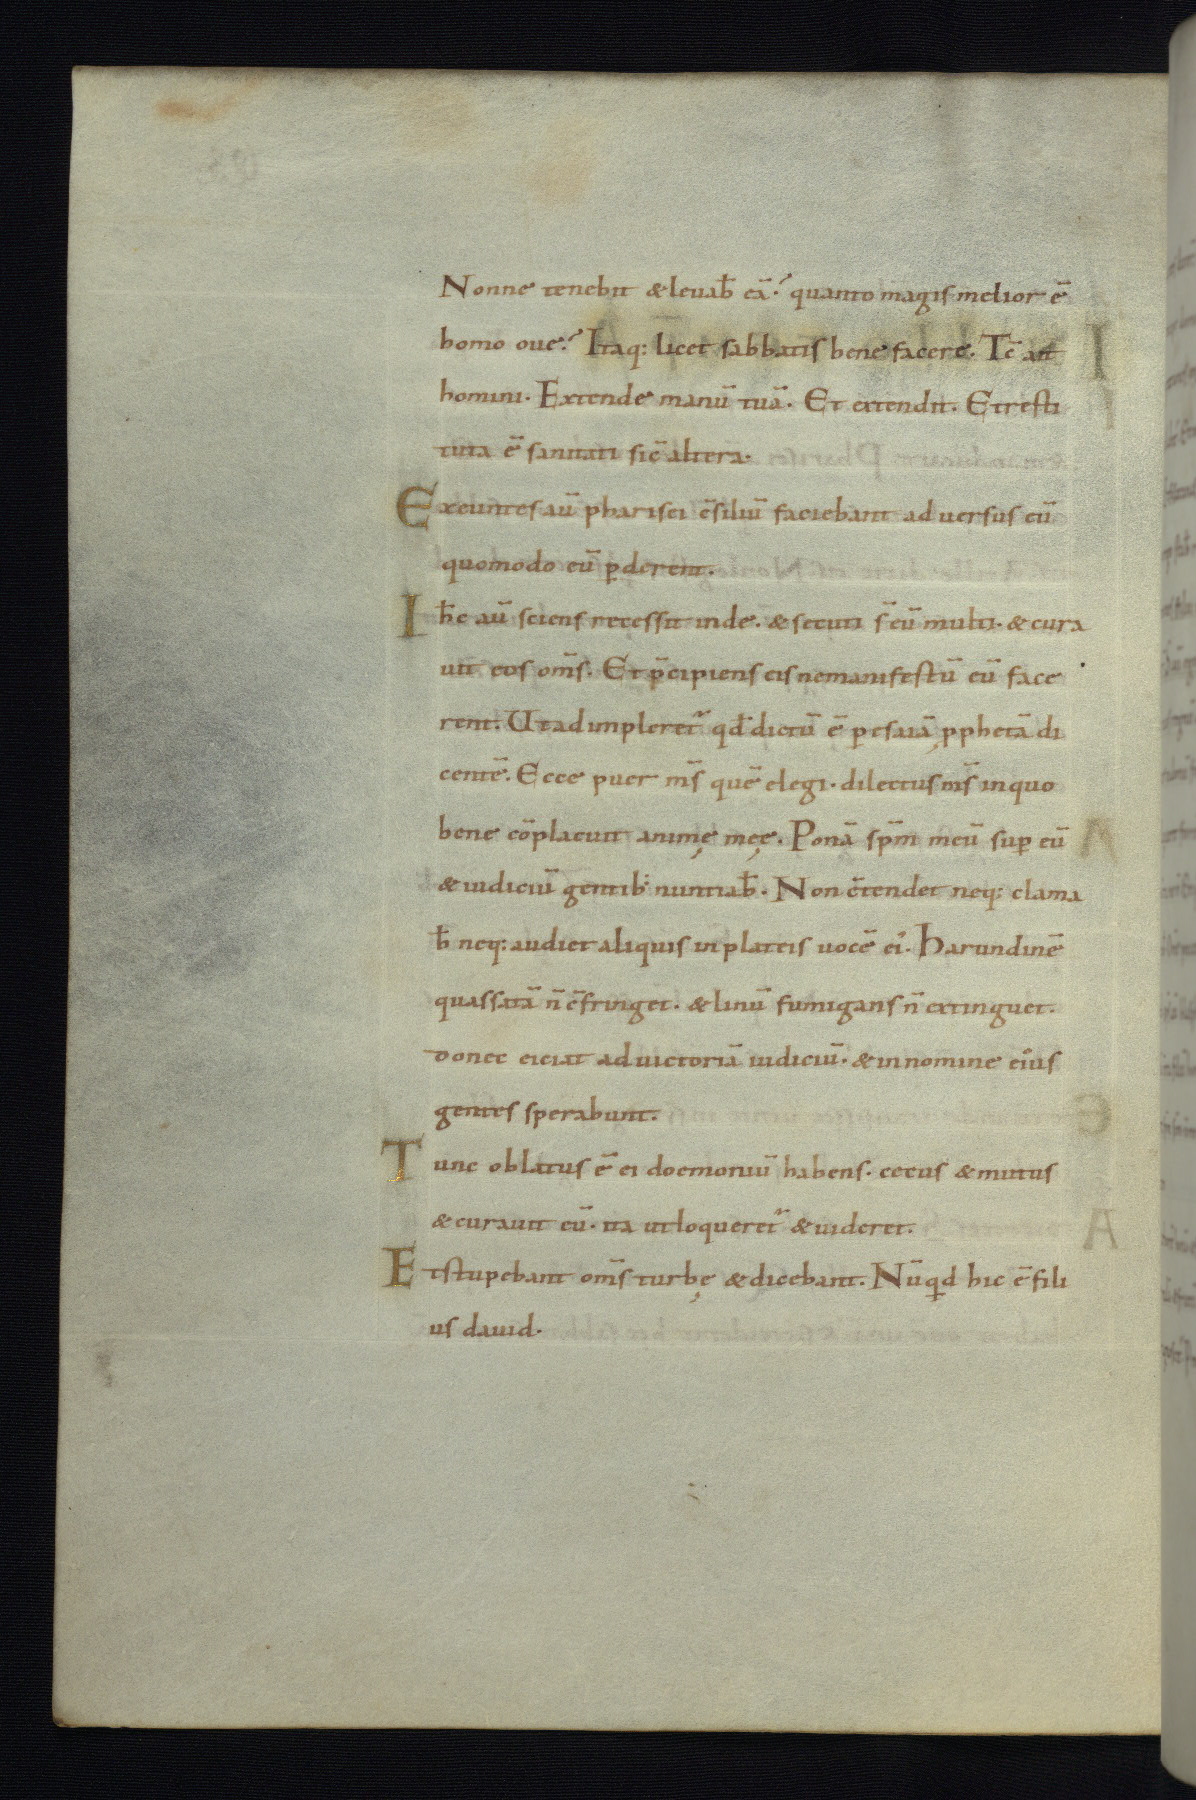 Nonne tenebit & levab̄ eā? quanto magis melior ē
homo ove? Itaq: licet sabbatis bene facere. Tc̄ ait
homini. Extende manū tuā. Et extendit. Et resti
tuta ē sanitati sic̄ altera.
Exeuntes aū pharisei c̄siliū faciebant adversus eū
quomodo eū ꝑderent.
Ih̄c aū sciens recessit inde. & secuti s̄ eū multi. & cura
uit eos om̄s. Et p̄cipiens eis ne manifestū eū face
rent. Ut adimpleret̄ qd̄ dictū ē ꝑ esaiā ꝓphetā di
centē. Ecce puer m̄s quē elegi. dilectus m̄s in quo
bene cōplacuit animę meę. Ponā sp̄m meū suꝑ eū
& iudiciū gentib; nuntiab̄. Non c̄tendet neq: clama
b̄ neq: audiet aliquis in plateis uocē ei᾿. Harundinē
quassatā n̄ c̄fringet. & linū fumigans n̄ extinguet.
donec eiciat ad uictoriā iudiciū. & in nomine eius
gentes sperabunt.
Tunc oblatus ē ei doemoniū habens. cecus & mutus
& curauit eū. ita ut loqueret̄ & uideret.
Et stupebant om̄s turbę & dicebant. Nūqd hic ē fili
us dauid.